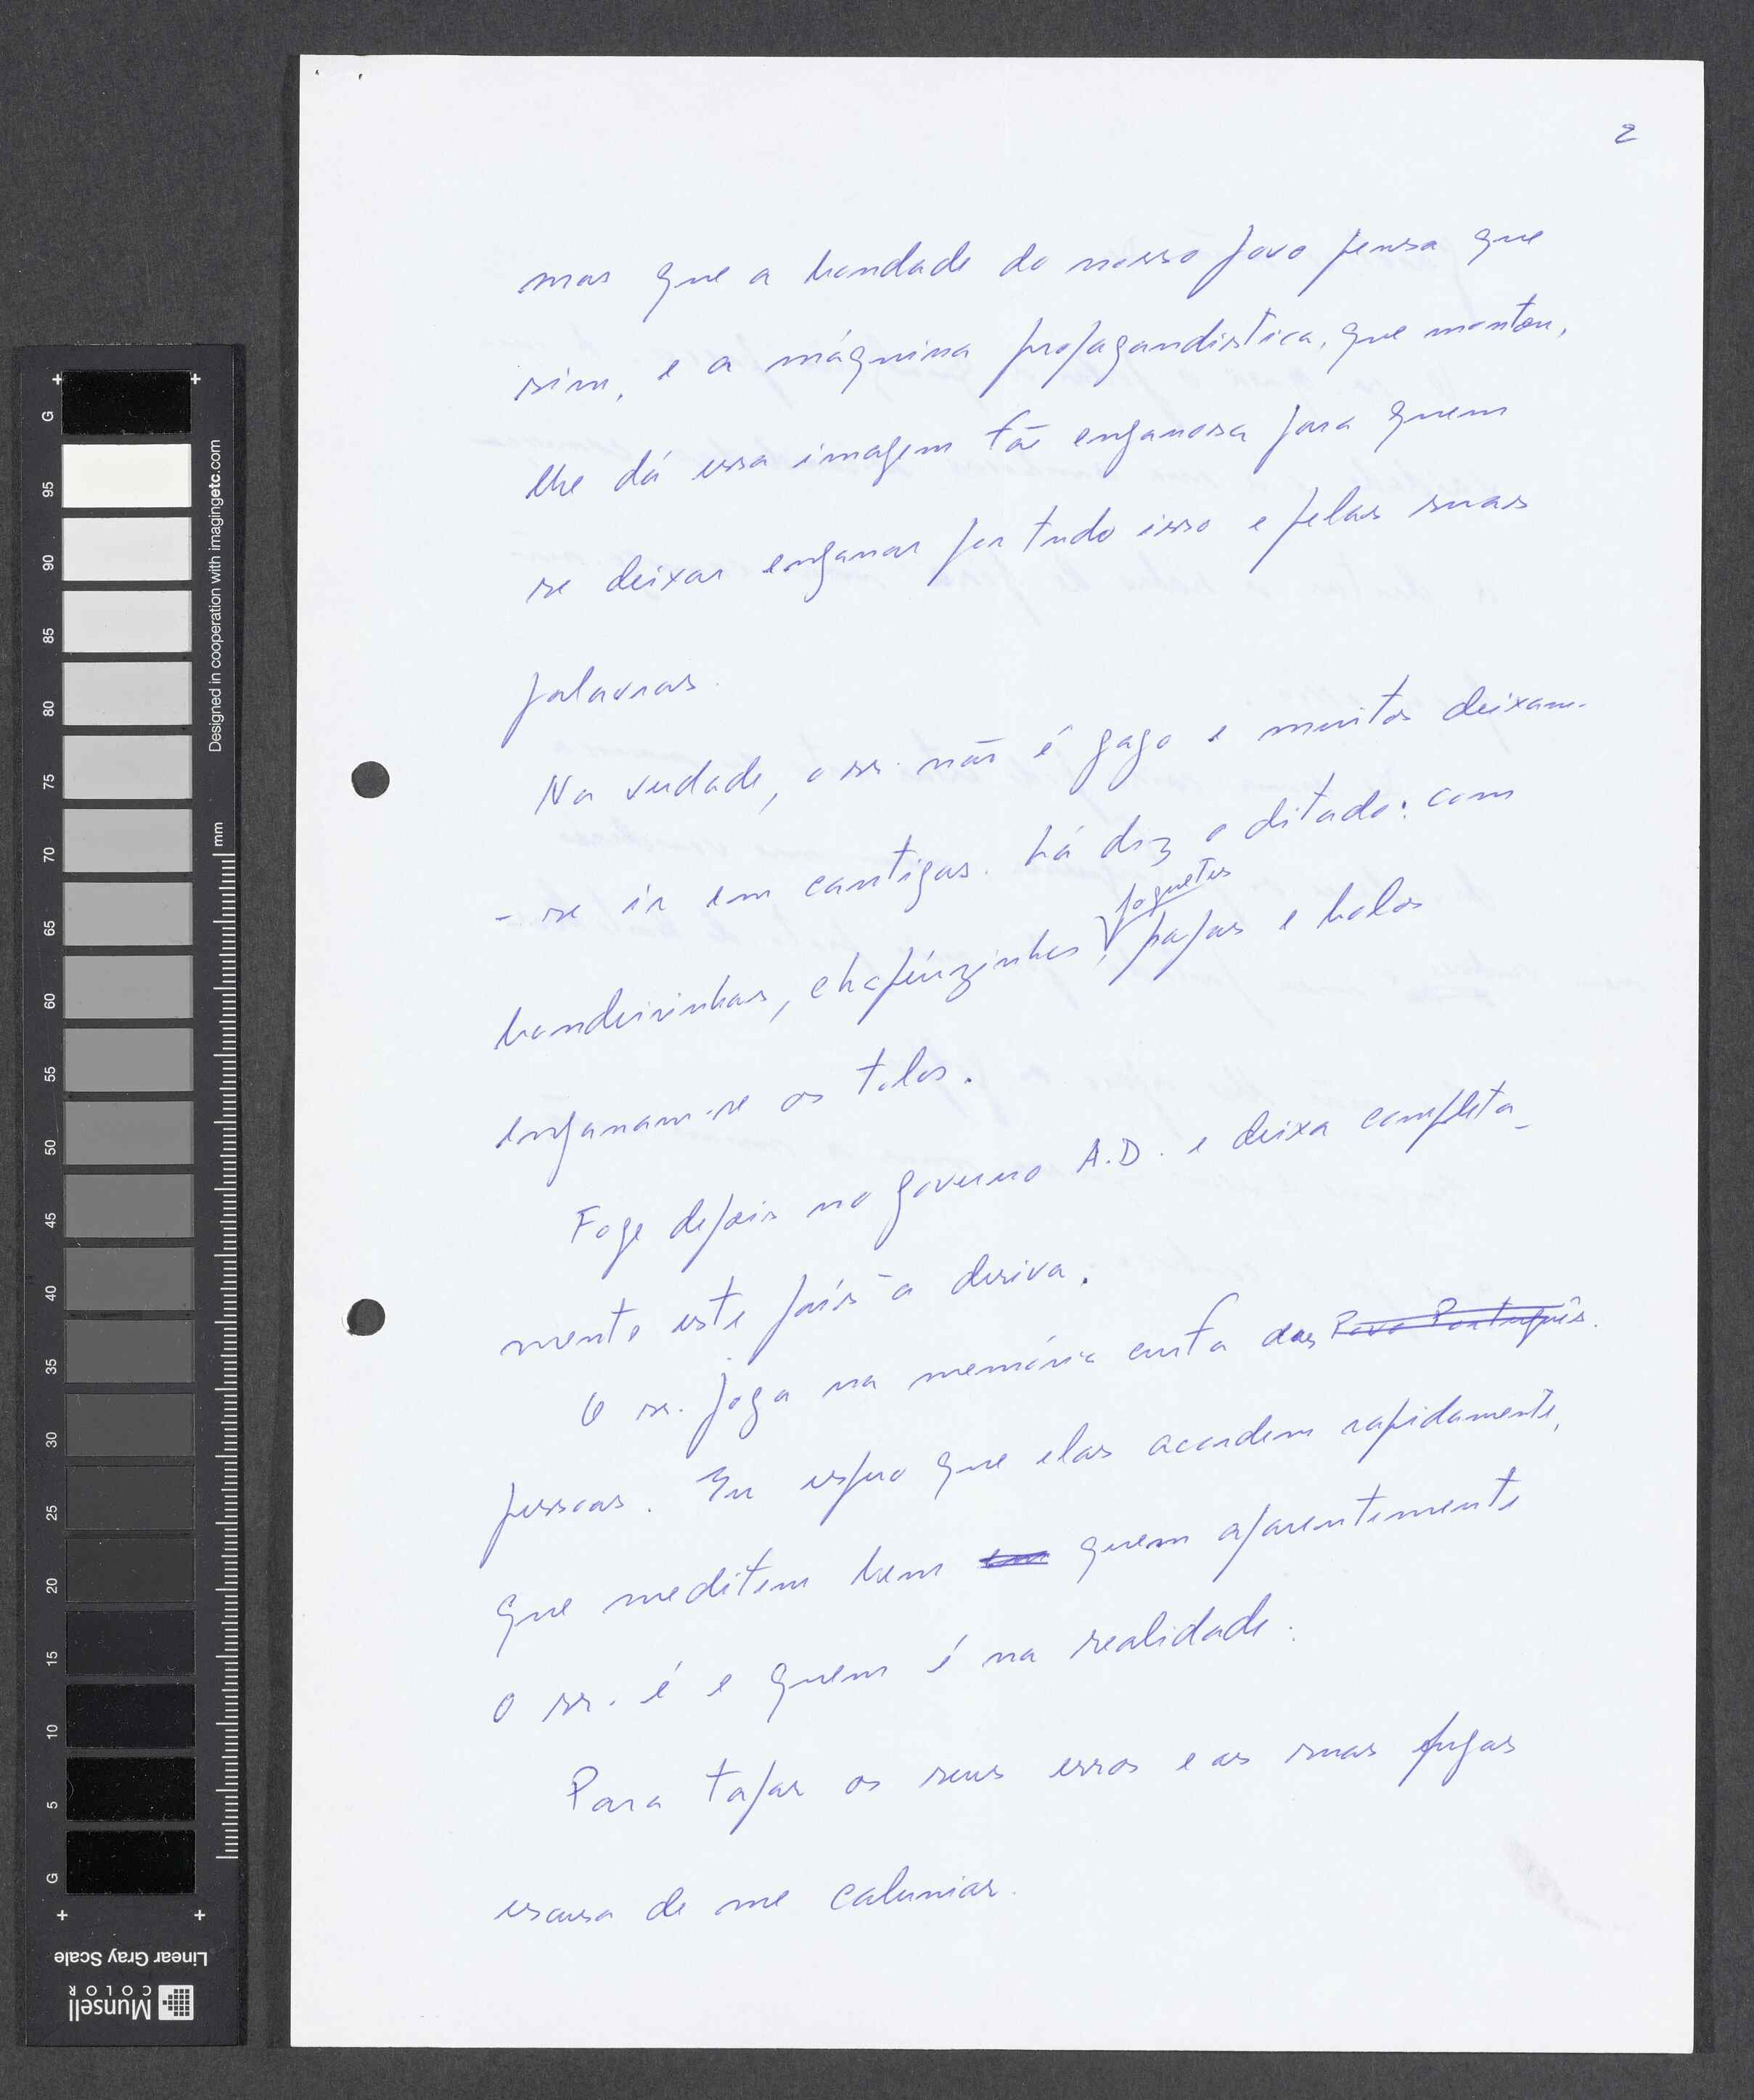 2
mas que a bondade do nosso povo pensa que
sim, e a máquina propagandistica, que montou,
lhe dá essa imagem tão enganosa para quem
se deixar enganar por tudo isso e pelas suas
palavras.
Na verdade, o sr. não é gago e muitos deixam-
- se ir em cantigas. Lá diz o ditado: com
foguetes
bandeirinhas, chapéuzinhos, papas e bolos
enganam-se os tolos.
Foge depois no governo A.D. e deixa completa-
mente este país à deriva.
O sr. joga na memória curta das Povo Português.
pessoas. Eu espero que elas acordem rapidamente,
que meditem bem em quem aparentemente
o sr. é e quem é na realidade.
Para tapar os seus erros e as suas fugas
escusa de me caluniar.
G
95
90
85
80
75
70
65
60
55
50
45
40
35
30
25
20
15
10
5
G
Designed in cooperation with imagingetc.com
mm
Linear Gray Scale
Munsell
COLOR